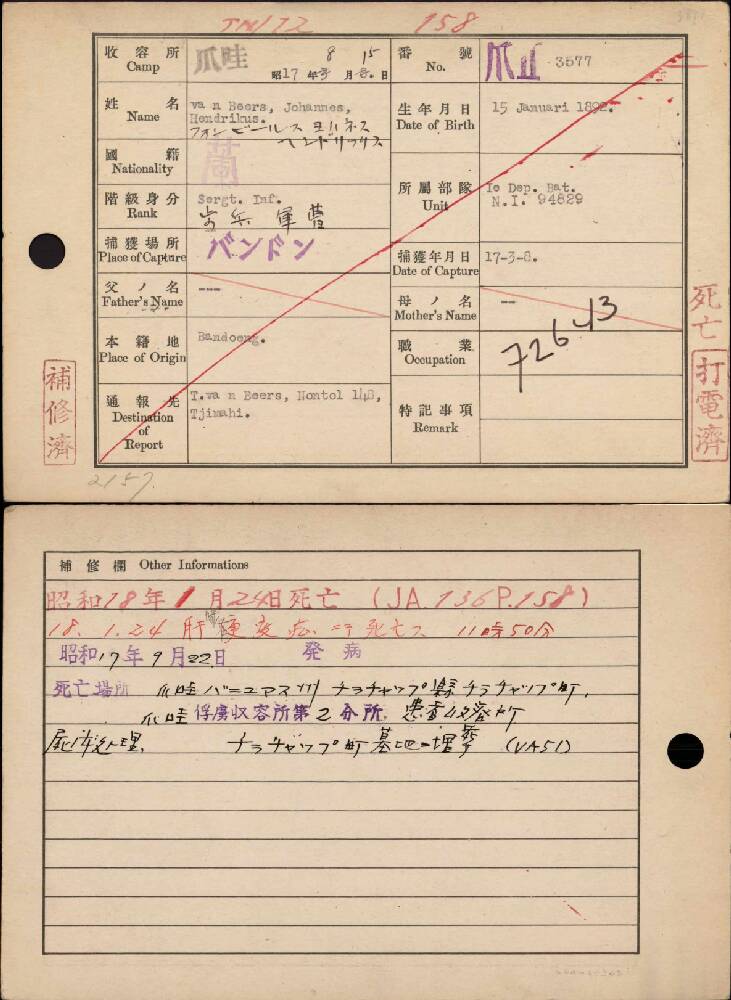 TM172 158
收容所 Camp 爪哇 昭17年 8月15日
番號 No. 爪Ⅱ 3577
姓名 Name va n Beers, Johannes,
Hendrikus.
フォンビールス ヨハネス
ヘンドリックス
生年月日 Date of Birth 15 Januari 1892.
國籍 Nationality 蘭
階級身分 Rank Sergt. Inf.
歩兵 軍曹
所屬部隊 Unit Ie Dep. Bat.
N.I. 94829
捕獲場所 Place of Capture バンドン
捕獲年月日 Date of Capture 17-3-8.
父ノ名 Father's Name ---
母ノ名 Mother's Name --
本籍地 Place of Origin Bandoeng.
職業 Occupation
72643
通報先 Destination of Report T.va n Beers, Nontol 148,
Tjimahi.
特記事項 Remark
補修濟
死亡
打電濟
2157.
補修欄 Other Informations
昭和18年1月24日死亡 (JA.136P.158)
18.1.24 肝硬変症ニテ死亡ス 11時50分
昭和17年9月22日 発病
死亡場所 爪哇バニュマス州チラチャップ縣チラチャップ町,
爪哇俘虜収容所第2分所,患者収容所
屍体処理, チラチャップ町墓地ニ埋葬 (VA51)